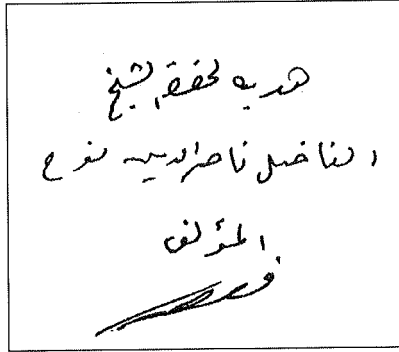 هدية لحضرة الشيخ
الفاضل ناصر الدين نوح
المؤلف